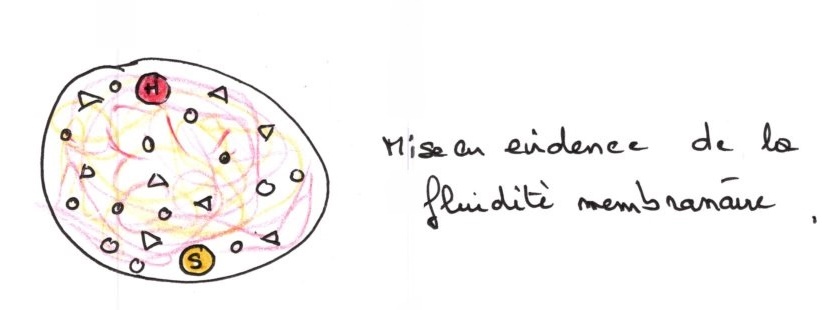 H
Mise en evidence de la
fluidité membranaire.
S